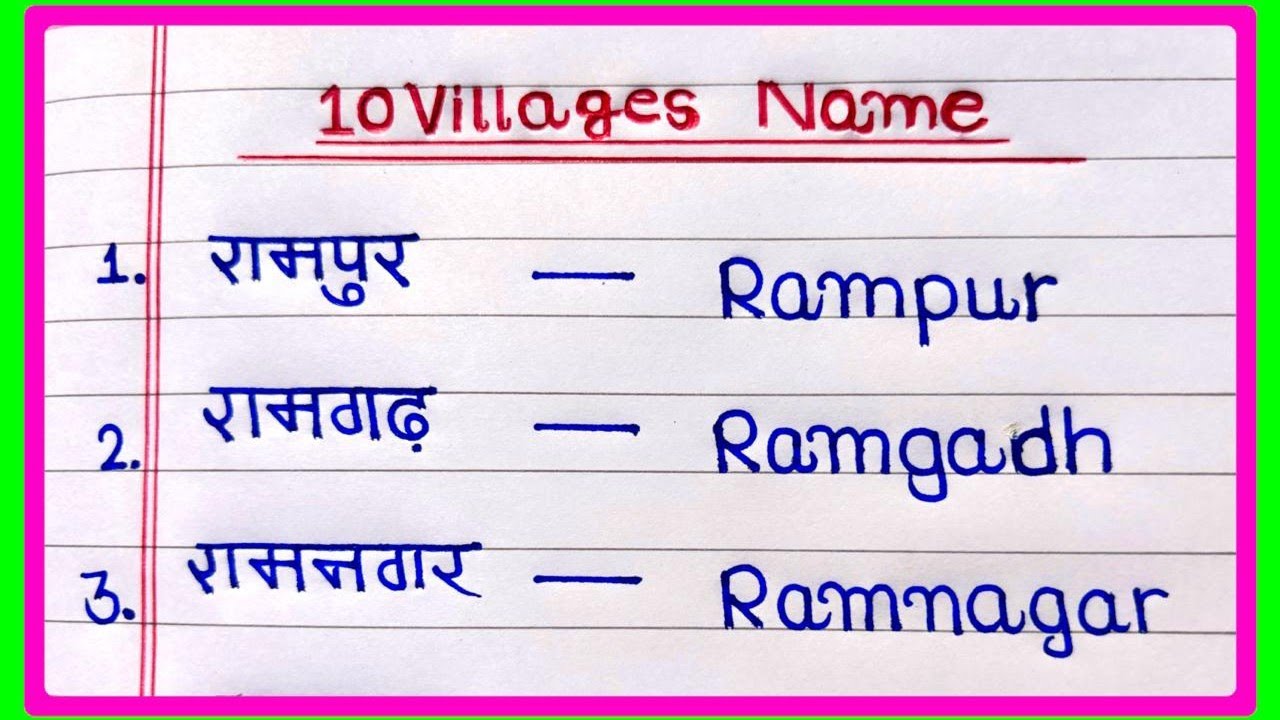 10 Villages Name
1. रामपुर — Rampur
2. रामगढ़ — Ramgadh
3. रामनगर — Ramnagar